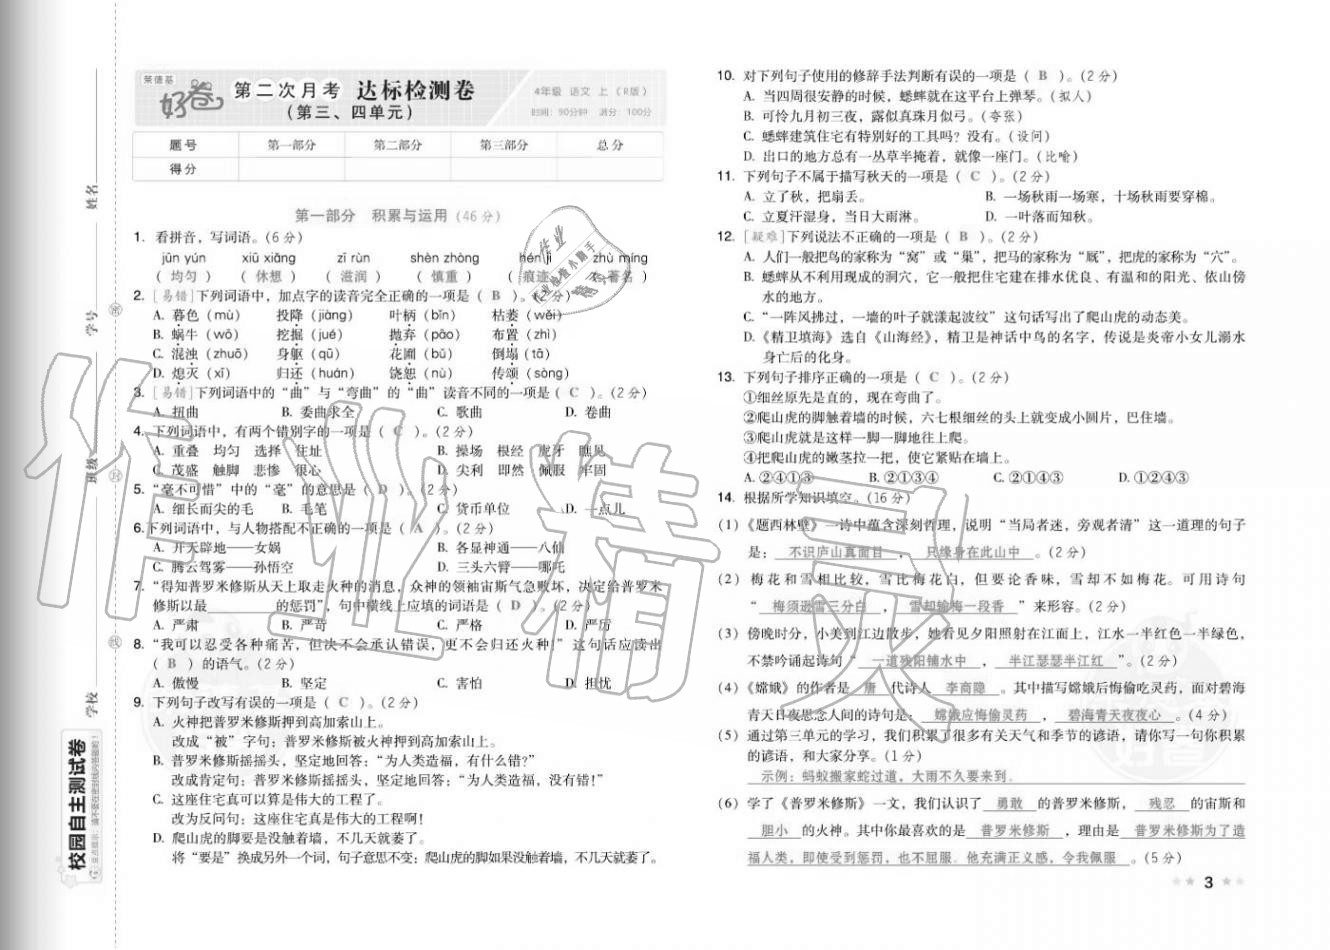 莱德基
好卷
第二次月考 达标检测卷
(第三、四单元)
4年级 语文 上（R版）
时间：90分钟 满分：100分
题号 第一部分 第二部分 第三部分 总分
得分
第一部分 积累与运用(46分)
1. 看拼音，写词语。(6分)
jūn yún xiū xiǎng zī rùn shèn zhòng hén jì zhù míng
( 均匀 ) ( 休想 ) ( 滋润 ) ( 慎重 ) ( 痕迹 ) ( 著名 )
2. [易错]下列词语中，加点字的读音完全正确的一项是（ B ）。(2分)
A. 暮色（mù） 投降（jiàng） 叶柄（bǐn） 枯萎（wěi）
B. 蜗牛（wō） 挖掘（jué） 抛弃（pāo） 布置（zhì）
C. 混浊（zhuō） 身躯（qū） 花圃（bǔ） 倒塌（tā）
D. 熄灭（xī） 归还（huán） 饶恕（nù） 传颂（sòng）
3. [易错]下列词语中的“曲”与“弯曲”的“曲”读音不同的一项是（ C ）。(2分)
A. 扭曲 B. 委曲求全 C. 歌曲 D. 卷曲
4. 下列词语中，有两个错别字的一项是（ C ）。(2分)
A. 重叠 均匀 选择 住址 B. 操场 根经 虎牙 瞧见
C. 茂盛 触脚 悲惨 很心 D. 尖利 即然 佩服 牢固
5. “毫不可惜”中的“毫”的意思是（ D ）。(2分)
A. 细长而尖的毛 B. 毛笔 C. 货币单位 D. 一点儿
6. 下列词语中，与人物搭配不正确的一项是（ A ）。(2分)
A. 开天辟地——女娲 B. 各显神通——八仙
C. 腾云驾雾——孙悟空 D. 三头六臂——哪吒
7. “得知普罗米修斯从天上取走火种的消息，众神的领袖宙斯气急败坏，决定给普罗米
修斯以最________的惩罚”，句中横线上应填的词语是（ D ）。(2分)
A. 严肃 B. 严苛 C. 严格 D. 严厉
8. “我可以忍受各种痛苦，但决不会承认错误，更不会归还火种！”这句话应读出
（ B ）的语气。(2分)
A. 傲慢 B. 坚定 C. 害怕 D. 担忧
9. 下列句子改写有误的一项是（ C ）。(2分)
A. 火神把普罗米修斯押到高加索山上。
改成“被”字句：普罗米修斯被火神押到高加索山上。
B. 普罗米修斯摇摇头，坚定地回答：“为人类造福，有什么错？”
改成肯定句：普罗米修斯摇摇头，坚定地回答：“为人类造福，没有错！”
C. 这座住宅真可以算是伟大的工程了。
改为反问句：这座住宅真是伟大的工程啊！
D. 爬山虎的脚要是没触着墙，不几天就萎了。
将“要是”换成另外一个词，句子意思不变：爬山虎的脚如果没触着墙，不几天就萎了。
10. 对下列句子使用的修辞手法判断有误的一项是（ B ）。(2分)
A. 当四周很安静的时候，蟋蟀就在这平台上弹琴。（拟人）
B. 可怜九月初三夜，露似真珠月似弓。（夸张）
C. 蟋蟀建筑住宅有特别好的工具吗？没有。（设问）
D. 出口的地方总有一丛草半掩着，就像一座门。（比喻）
11. 下列句子不属于描写秋天的一项是（ C ）。(2分)
A. 立了秋，把扇丢。 B. 一场秋雨一场寒，十场秋雨要穿棉。
C. 立夏汗湿身，当日大雨淋。 D. 一叶落而知秋。
12. [疑难]下列说法不正确的一项是（ B ）。(2分)
A. 人们一般把鸟的家称为“窝”或“巢”，把马的家称为“厩”，把虎的家称为“穴”。
B. 蟋蟀从不利用现成的洞穴，它一般把住宅建在排水优良、有温和的阳光、依山傍
水的地方。
C. “一阵风拂过，一墙的叶子就漾起波纹”这句话写出了爬山虎的动态美。
D.《精卫填海》选自《山海经》，精卫是神话中鸟的名字，传说是炎帝小女儿溺水
身亡后的化身。
13. 下列句子排序正确的一项是（ C ）。(2分)
①细丝原先是直的，现在弯曲了。
②爬山虎的脚触着墙的时候，六七根细丝的头上就变成小圆片，巴住墙。
③爬山虎就是这样一脚一脚地往上爬。
④把爬山虎的嫩茎拉一把，使它紧贴在墙上。
A. ②④①③ B. ②①③④ C. ②①④③ D. ①②④③
14. 根据所学知识填空。(16分)
(1)《题西林壁》一诗中蕴含深刻哲理，说明“当局者迷，旁观者清”这一道理的句子
是：不识庐山真面目，只缘身在此山中。(2分)
(2) 梅花和雪相比较，雪比梅花白，但要论香味，雪却不如梅花。可用诗句
“梅须逊雪三分白，雪却输梅一段香”来形容。(2分)
(3) 傍晚时分，小美到江边散步，她看见夕阳照射在江面上，江水一半红色一半绿色，
不禁吟诵起诗句“一道残阳铺水中，半江瑟瑟半江红”。(2分)
(4)《嫦娥》的作者是唐代诗人李商隐。其中描写嫦娥后悔偷吃灵药，面对碧海
青天日夜思念人间的诗句是：嫦娥应悔偷灵药，碧海青天夜夜心。(4分)
(5) 通过第三单元的学习，我们积累了很多有关天气和季节的谚语，请你写一句你积累
的谚语，和大家分享。(1分)
示例：蚂蚁搬家蛇过道，大雨不久要来到。
(6) 学了《普罗米修斯》一文，我们认识了勇敢的普罗米修斯，残忍的宙斯和
胆小的火神。其中你最喜欢的是普罗米修斯，理由是普罗米修斯为了造
福人类，即使受到惩罚，也不屈服。他充满正义感，令我佩服。(5分)
3
姓名
学号
班级
学校
校园自主测试卷
密
封
线
作业精灵